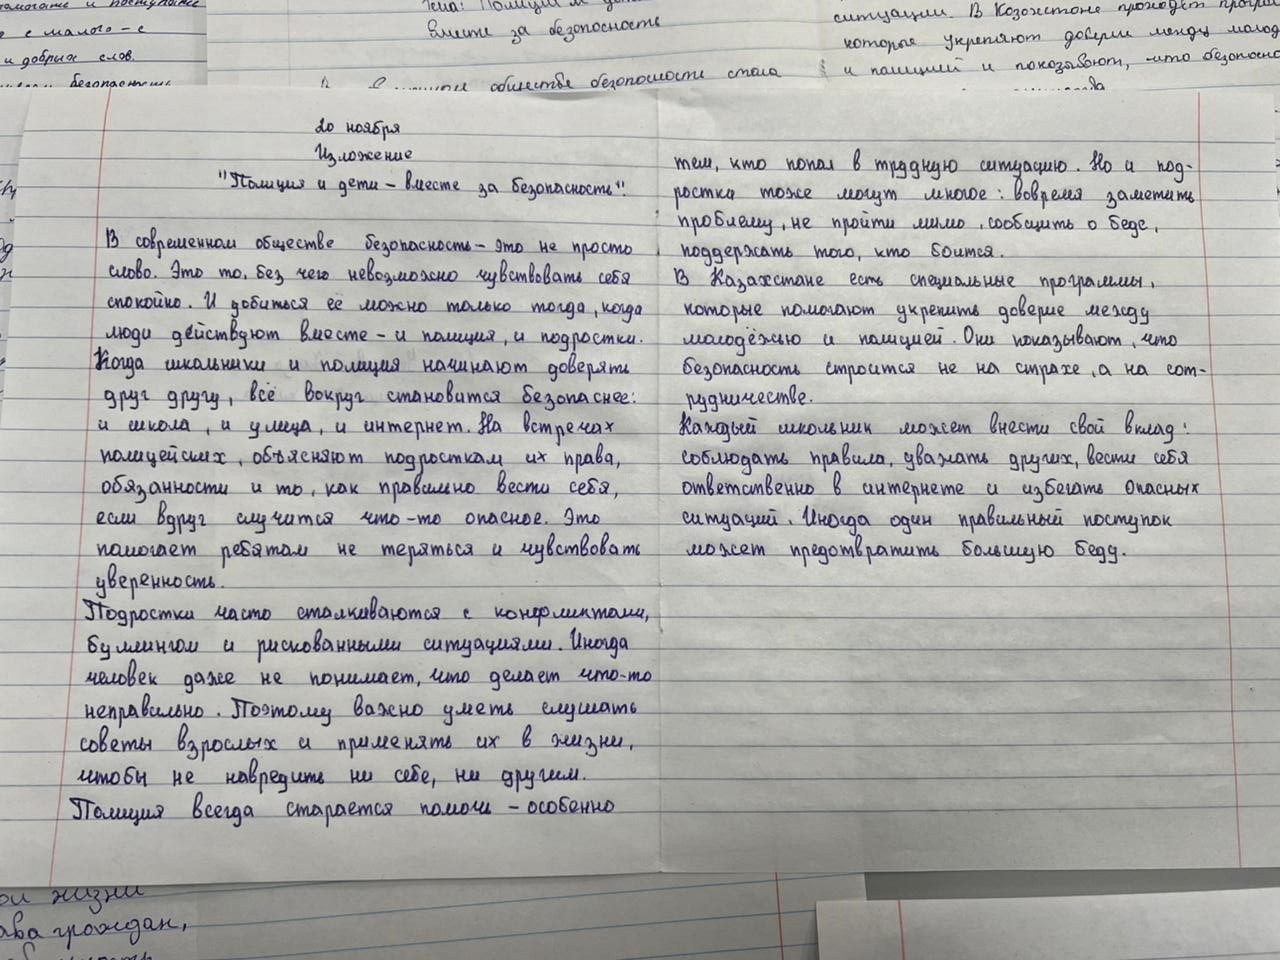 с малого – с
и добрых слов.
Вместе за безопасность
обществе безопасности стала
ситуации. В Казохстоне проходят
которые укрепляют доверие между
и полицией и показывают, что
20 ноября
Изложение
"Полиция и дети – вместе за безопасность".
В современном обществе безопасность – это не просто
слово. Это то, без чего невозможно чувствовать себя
спокойно. И добиться её можно только тогда, когда
люди действуют вместе – и полиция, и подростки.
Когда школьники и полиция начинают доверять
друг другу, всё вокруг становится безопаснее:
и школа, и улица, и интернет. На встречах
полицейских, объясняют подросткам их права,
обязанности и то, как правильно вести себя,
если вдруг случится что-то опасное. Это
помогает ребятам не теряться и чувствовать
уверенность.
Подростки часто сталкиваются с конфликтами,
буллингом и рискованными ситуациями. Иногда
человек даже не понимает, что делает что-то
неправильно. Поэтому важно уметь слушать
советы взрослых и применять их в жизни,
чтобы не навредить ни себе, ни другим.
Полиция всегда старается помочь – особенно
тем, кто попал в трудную ситуацию. Но и под-
ростки тоже могут многое: вовремя заметить
проблему, не пройти мимо, сообщить о беде,
поддержать того, кто боится.
В Казахстане есть специальные программы,
которые помогают укрепить доверие между
молодёжью и полицией. Они показывают, что
безопасность строится не на страхе, а на сот-
рудничестве.
Каждый школьник может внести свой вклад:
соблюдать правила, уважать других, вести себя
ответственно в интернете и избегать опасных
ситуаций. Иногда один правильный поступок
может предотвратить большую беду.
жизни
граждан,